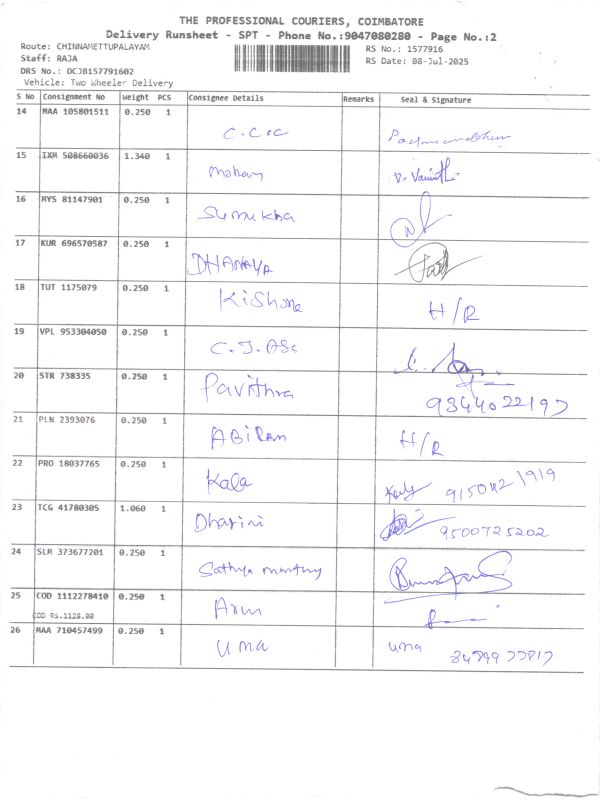 THE PROFESSIONAL COURIERS, COIMBATORE
Delivery Runsheet - SPT - Phone No.:9047080280 - Page No.:2
Route: CHINNAMETTUPALAYAM RS No.: 1577916
Staff: RAJA RS Date: 08-Jul-2025
DRS No.: DCJB157791602
Vehicle: Two Wheeler Delivery
S No Consignment No Weight PCS Consignee Details Remarks Seal & Signature
14 MAA 105801511 0.250 1
C.C&C
15 IXM 508660036 1.340 1
Mohan
16 MYS 81147901 0.250 1
Sumukha
17 KUR 696570587 0.250 1
DHANAYA
18 TUT 1175079 0.250 1
Kishore H/R
19 VPL 953304050 0.250 1
C.J.
20 STR 738335 0.250 1
Pavithra
9344022197
21 PLN 2393076 0.250 1
ABIRAM H/R
22 PRO 18037765 0.250 1
Kala
23 TCG 41780305 1.060 1
Dharini 9500725202
24 SLM 373677201 0.250 1
Sathya murthy
25 COD 1112278410 0.250 1
COD Rs.1128.00
Arun
26 MAA 710457499 0.250 1
Uma uma